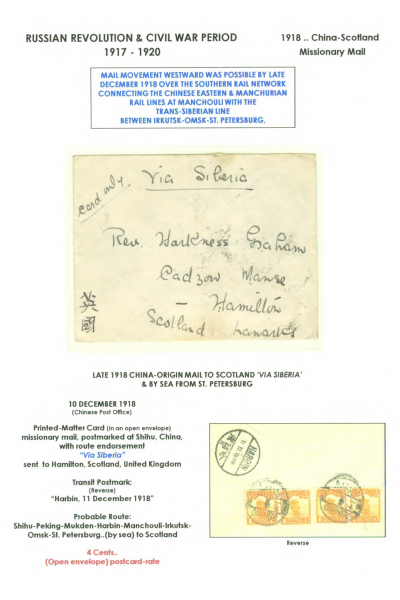 RUSSIAN REVOLUTION & CIVIL WAR PERIOD
1917 - 1920
1918 .. China-Scotland
Missionary Mail
MAIL MOVEMENT WESTWARD WAS POSSIBLE BY LATE
DECEMBER 1918 OVER THE SOUTHERN RAIL NETWORK
CONNECTING THE CHINESE EASTERN & MANCHURIAN
RAIL LINES AT MANCHOULI WITH THE
TRANS-SIBERIAN LINE
BETWEEN IRKUTSK-OMSK-ST. PETERSBURG.
card only
Via Siberia
Rev. Harkness Graham
Cadzow Manse
– Hamilton
Scotland Lanarks
英國
LATE 1918 CHINA-ORIGIN MAIL TO SCOTLAND 'VIA SIBERIA'
& BY SEA FROM ST. PETERSBURG
10 DECEMBER 1918
(Chinese Post Office)
Printed-Matter Card (in an open envelope)
missionary mail, postmarked at Shihu, China,
with route endorsement
"Via Siberia"
sent to Hamilton, Scotland, United Kingdom
Transit Postmark:
(Reverse)
"Harbin, 11 December 1918"
Probable Route:
Shihu-Peking-Mukden-Harbin-Manchouli-Irkutsk-
Omsk-St. Petersburg..(by sea) to Scotland
4 Cents..
(Open envelope) postcard-rate
HARBIN
Reverse